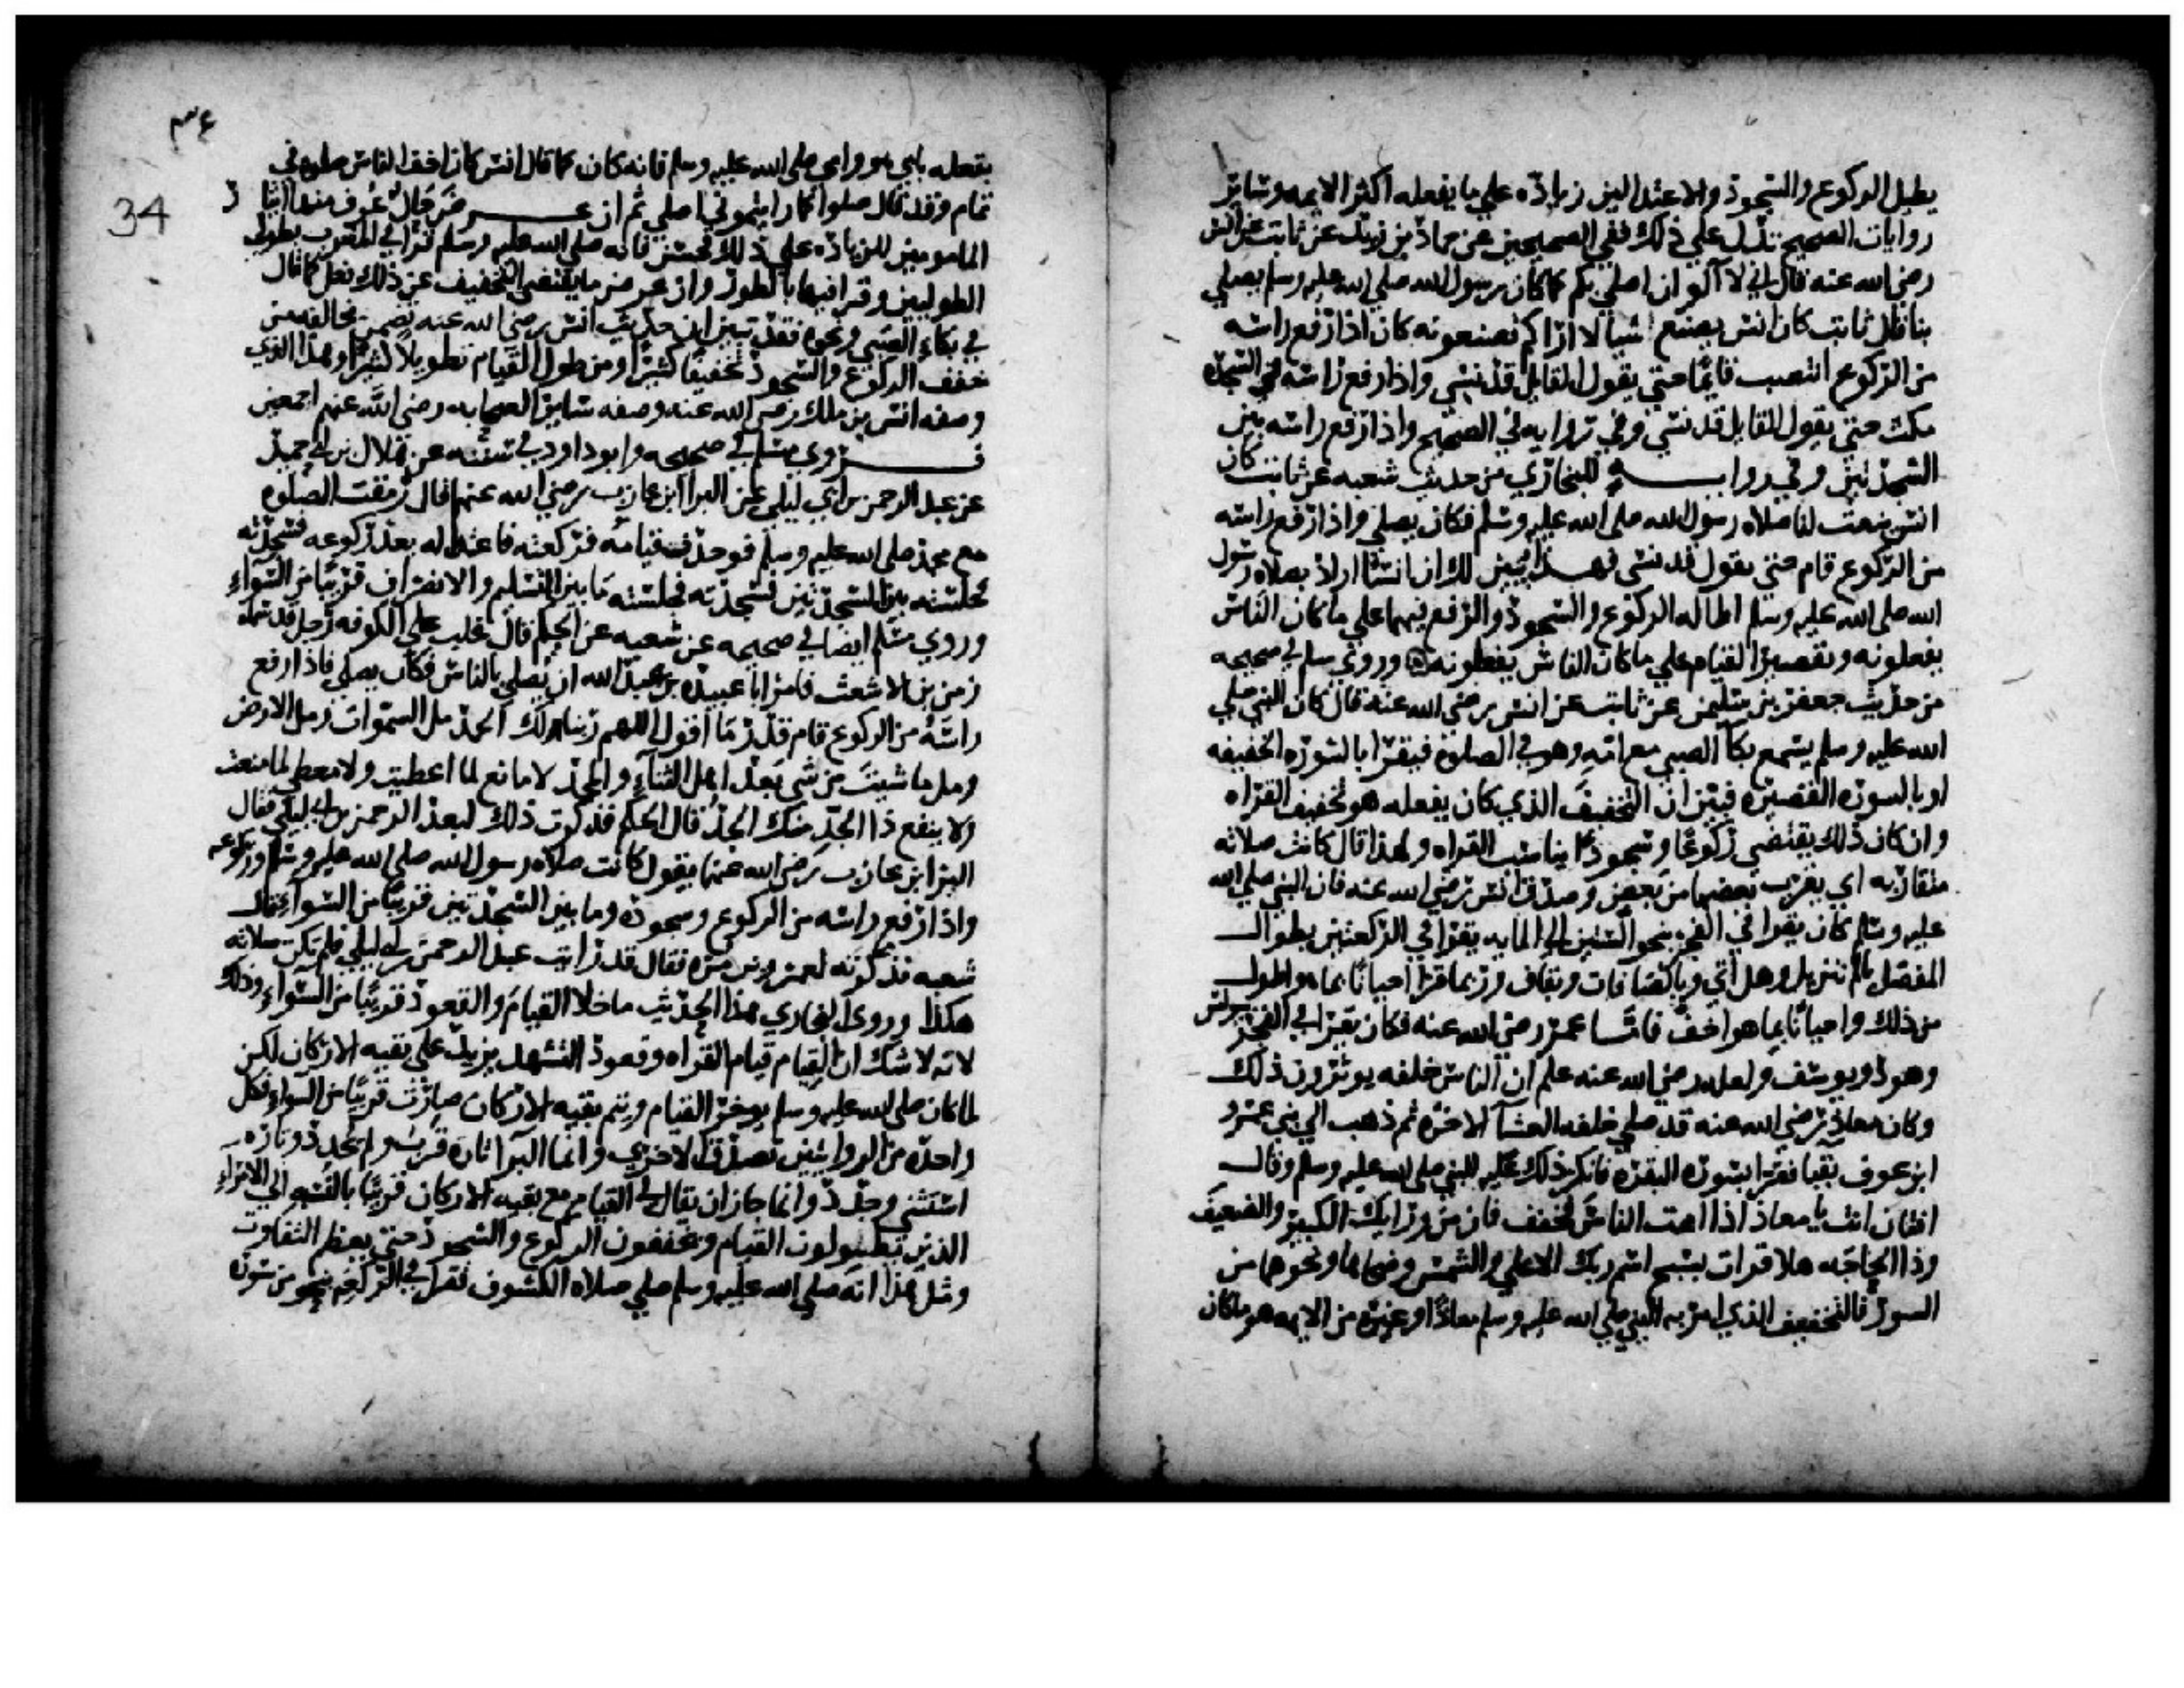 يطيل الركوع والسجود والاعتدالين زيادة علي ما يفعله اكثر الايمه وساير
روايات الصحيح تدل علي ذلك ففي الصحيحين عن حماد بن زيد عن ثابت عن انس
رضي الله عنه قال اني لا آلوا ان اصلي بكم كما كان رسول الله صلي الله عليه وسلم يصلي
بنا قال ثابت كان انس يصنع شيا لا اراكم تصنعونه كان اذا رفع راسه
من الركوع انتصب قايما حتي يقول القايل قد نسي واذا رفع راسه في السجده
مكث حتي يقول القايل قد نسي وفي روايه في الصحيح واذا رفع راسه بين
السجدتين وفي روايه للبخاري من حديث شعبه عن ثابت كان
انس ينعت لنا صلاه رسول الله صلي الله عليه وسلم فكان يصلي واذا رفع راسه
من الركوع قام حتي يقول قد نسي فهذا يبين لك ان انسا اراد بصلاه رسول
الله صلي الله عليه وسلم اطاله الركوع والسجود والرفع فيهما علي ما كان الناس
يفعلونه وتقصير القيام علي ما كان الناس يفعلونه وروي مسلم في صحيحه
من حديث جعفر بن سليمن عن ثابت عن انس رضي الله عنه قال كان النبي صلي
الله عليه وسلم يسمع بكا الصبي مع امه وهو في الصلوة فيقرا بالسوره الخفيفه
او بالسوره القصيره فبين ان التخفيف الذي كان يفعله هو تخفيف القراه
وان كان ذلك يقتضي ركوعا وسجودا يناسب القراه ولهذا قال كانت صلاته
متقاربه اي يقرب بعضها من بعض وصدق انس رضي الله عنه فان النبي صلي الله
عليه وسلم كان يقرا في الفجر بنحو الستين الي المايه يقرا في الركعتين بطوال
المفصل بالم تنزيل وهل اتي وبالصافات وبقاف وربما قرا احيانا بما هو اطول
من ذلك واحيانا بما هو اخف فاما عمر رضي الله عنه فكان يقرا في الفجر بيونس
وهود ويوسف ولعله رضي الله عنه علم ان الناس خلفه يوثرون ذلك
وكان معاذ رضي الله عنه قد صلي خلفه العشا الاخره ثم ذهب الي بني عمرو
ابن عوف بقبا فقرا بسوره البقره فانكر ذلك عليه النبي صلي الله عليه وسلم وقال
افتان انت يا معاذ اذا اممت الناس فخفف فان من ورايك الكبير والضعيف
وذا الحاجه هلا قرات بسبح اسم ربك الاعلي والشمس وضحاها ونحوها من
السور فالتخفيف الذي امر به النبي صلي الله عليه وسلم معاذا وغيره من الايمه هو ما كان
٣٤
34
يفعله بابي هو وامي صلي الله عليه وسلم فانه كان كما قال انس كان اخف الناس صلوه في
تمام وقد قال صلوا كما رايتموني اصلي ثم ان عرض حال عرف منها ايثار
المامومين للزياده علي ذلك فحسن فانه صلي الله عليه وسلم قرا في المغرب بطولي
الطوليين وقرا فيها بالطور وان عرض ما يقتضي التخفيف عن ذلك فعل كما قال
في بكاء الصبي ونحوه فقد تبين ان حديث انس رضي الله عنه تضمن مخالفه من
خفف الركوع والسجود تخفيفا كثيرا ومن طول القيام تطويلا كثيرا وهذا الذي
وصفه انس بن ملك رضي الله عنه وصفه ساير الصحابه رضي الله عنهم اجمعين
فروي مسلم في صحيحه وابو داود في سننه عن هلال بن ابي حميد
عن عبد الرحمن بن ابي ليلي عن البرا ابن عازب رضي الله عنهما قال رمقت الصلوه
مع محمد صلي الله عليه وسلم فوجدت قيامه فركعته فاعتداله بعد ركوعه فسجدته
فجلسته بين السجدتين فسجدته فجلسته ما بين التسليم والانصراف قريبا من السواء
وروي مسلم ايضا في صحيحه عن شعبه عن الحكم قال غلب علي الكوفه رجل قد سماه
زمن بن الاشعث فامر ابا عبيده بن عبد الله ان يصلي بالناس فكان يصلي فاذا رفع
راسه من الركوع قام قدر ما اقول اللهم ربنا لك الحمد مل السموات ومل الارض
ومل ما شيت من شي بعد اهل الثناء والمجد لا مانع لما اعطيت ولا معطي لما منعت
ولا ينفع ذا الجد منك الجد قال الحكم فذكرت ذلك لعبد الرحمن بن ابي ليلي فقال
البرا بن عازب رضي الله عنهما يقول كانت صلاه رسول الله صلي الله عليه وسلم وركوعه
واذا رفع راسه من الركوع وسجوده وما بين السجدتين قريبا من السواء قال
شعبه فذكرته لعمرو بن مره فقال قد رايت عبد الرحمن بن ابي ليلي فلم تكن صلاته
هكذا وروي البخاري هذا الحديث ما خلا القيام والقعود قريبا من السواء وذلك
لانه لا شك ان القيام قيام القراه وقعود التشهد يزيد علي بقيه الاركان لكن
لما كان صلي الله عليه وسلم يوجز القيام ويتم بقيه الاركان صارت قريبا من السواء فكل
واحده من الروايتين تصدق الاخري وانما البرا تاره قرب ولم يحدد وتاره
استثني وحدد وانما جاز ان يقال في القيام مع بقيه الاركان قريبا بالنسبه الي الامراء
الذين يطيلون القيام ويخففون الركوع والسجود حتي يعظم التفاوت
ومثل هذا انه صلي الله عليه وسلم صلي صلاه الكسوف فقرا في الركعه بنحو من سوره